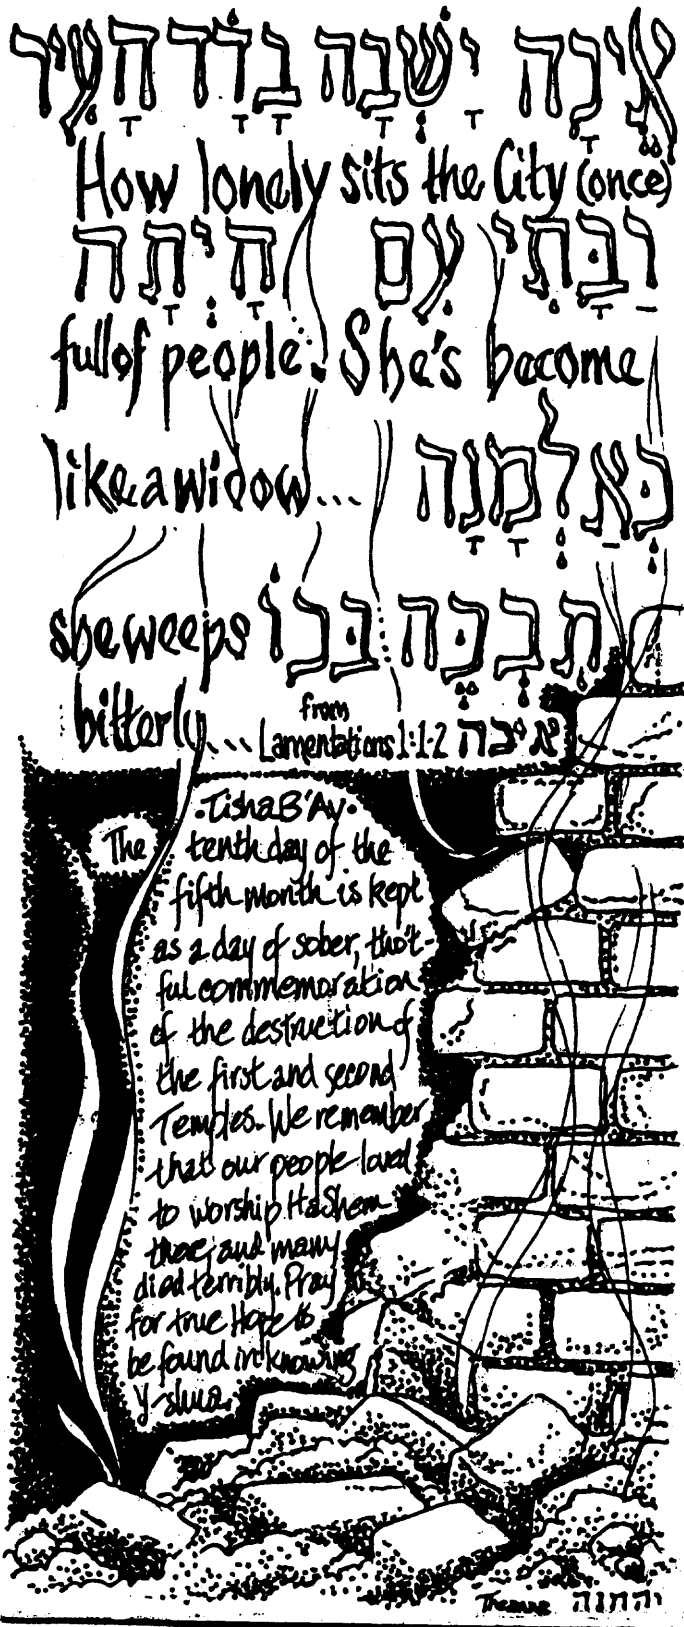 אֵיכָה יָשְׁבָה בָדָד הָעִיר
How lonely sits the City (once)
רַבָּתִי עָם הָיְתָה
full of people. She's become
like a widow... כְּאַלְמָנָה
she weeps בָּכוֹ תִבְכֶּה
bitterly... from Lamentations 1:1-2 איכה
·Tisha B'Av·
The tenth day of the
fifth month is kept
as a day of sober, tho't-
ful commemoration
of the destruction of
the first and second
Temples. We remember
that our people loved
to worship HaShem
there, and many
died terribly. Pray
for true Hope to
be found in knowing
Y'shua.